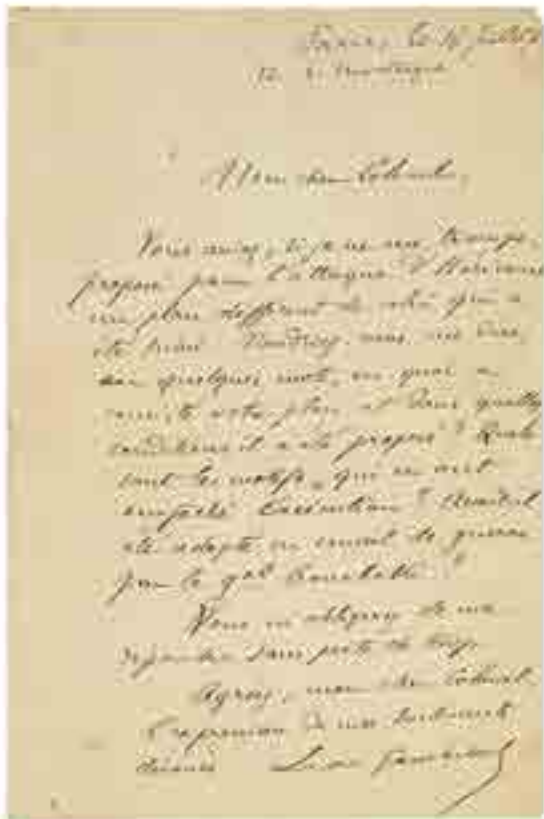 Paris, le 14 Juillet
12. r. Montaigne
Mon cher Colonel,
Vous aviez, si je ne me trompe,
proposé pour l'attaque d'
un plan différent de celui qui a
été suivi. Voudriez-vous me dire,
en quelques mots, en quoi a
consisté votre plan et dans quelles
conditions il a été proposé? Quels
sont les motifs, qui en ont
empêché l'exécution?
été adopté en conseil de guerre
par le gal
Vous m'obligerez de me
répondre sans perte de temps.
Agréez, mon cher Colonel
l'expression de mes sentiments
dévoués Léon Gambetta